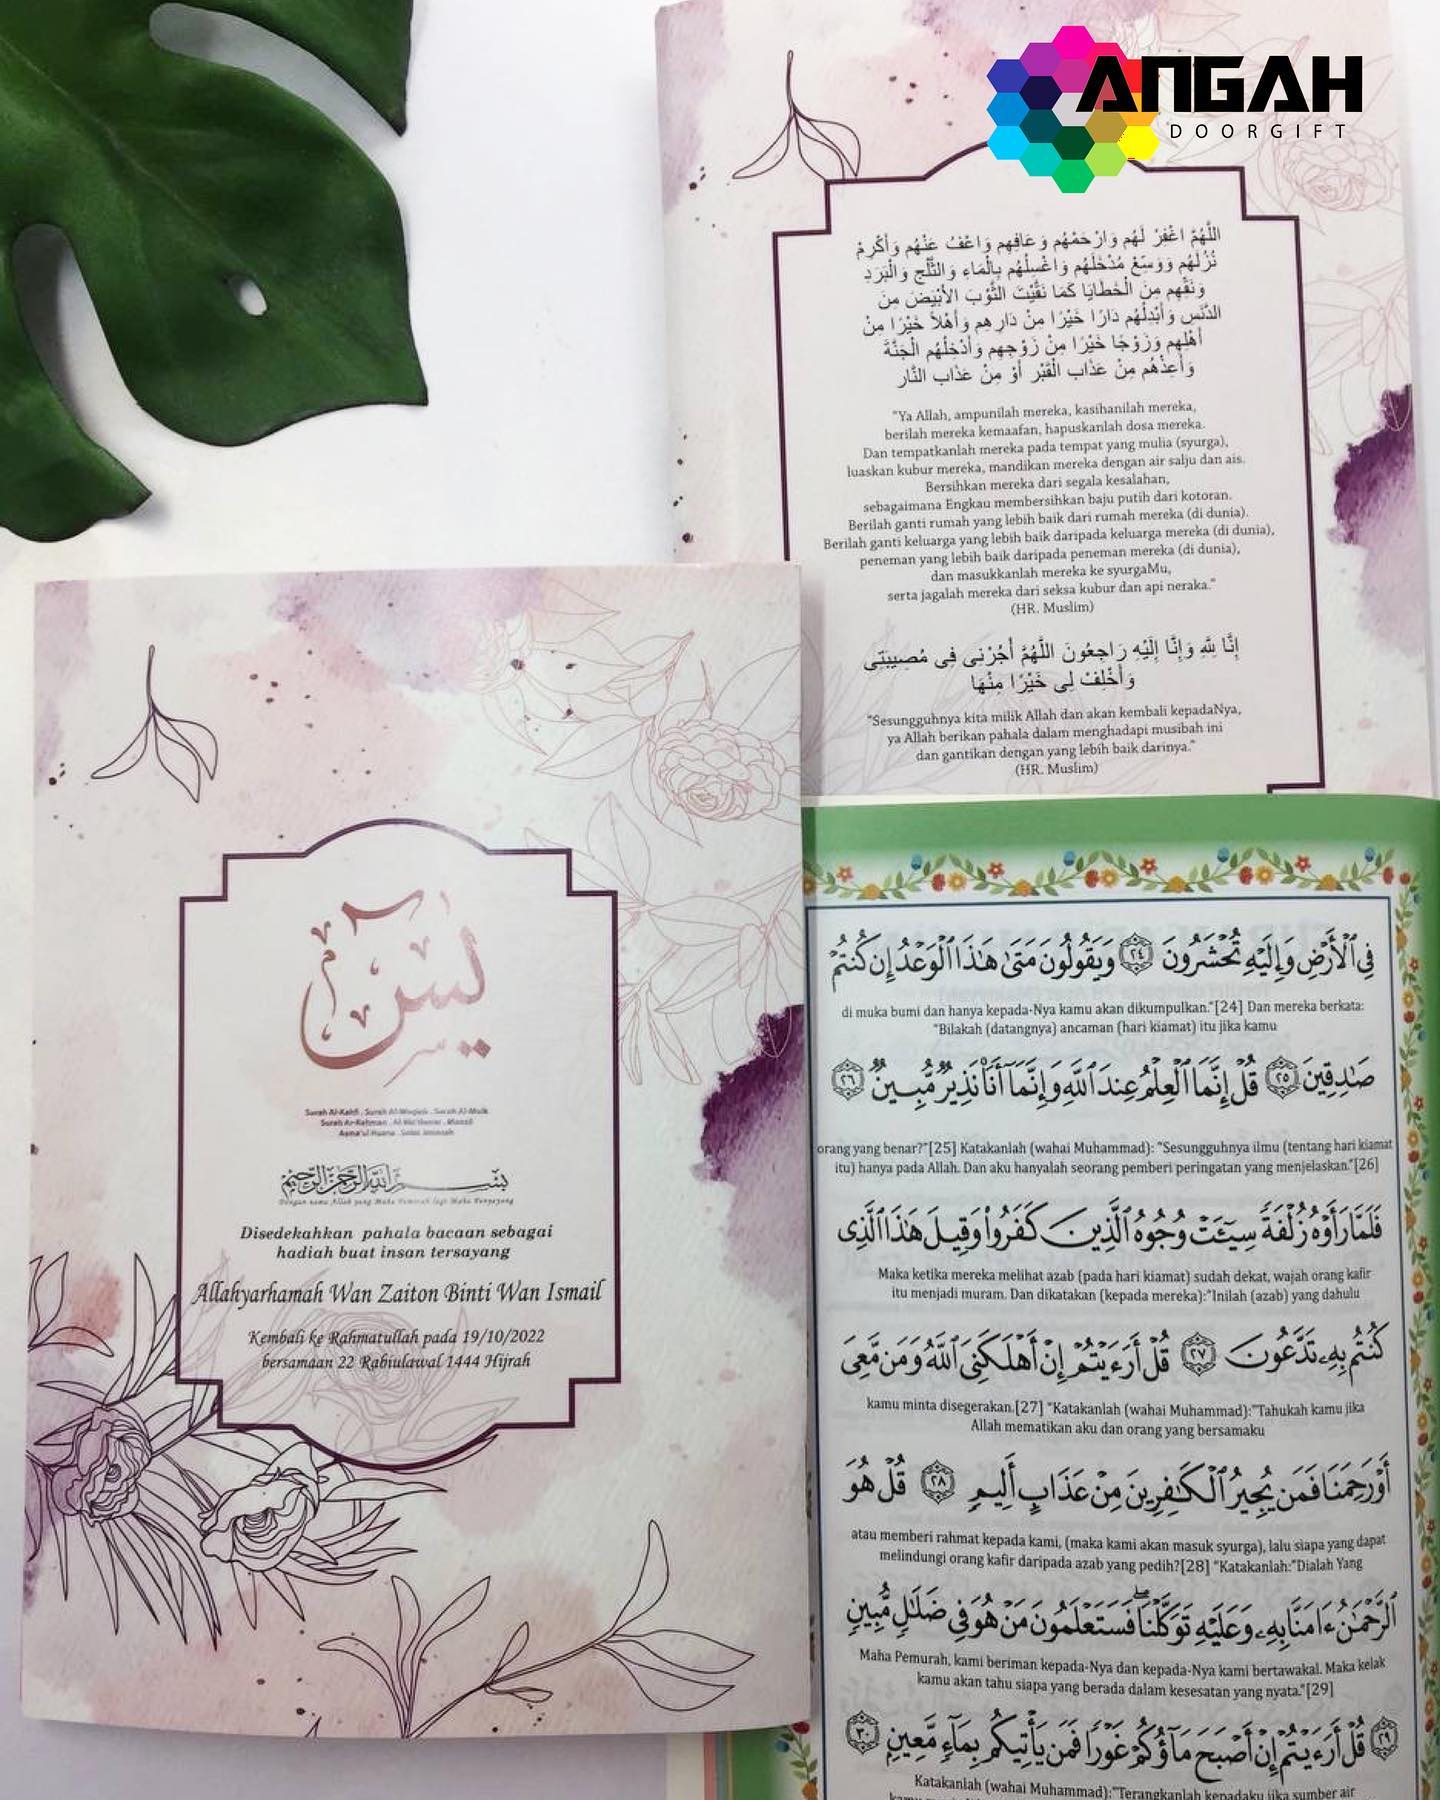 ANGAH
DOORGIFT
اللَّهُمَّ اغْفِرْ لَهُم وَارْحَمْهُم وَعَافِهِم وَاعْفُ عَنْهُم وَأَكْرِمْ
نُزُلَهُم وَوَسِّعْ مُدْخَلَهُم وَاغْسِلْهُم بِالْمَاءِ وَالثَّلْجِ وَالْبَرَدِ
وَنَقِّهِم مِنَ الْخَطَايَا كَمَا نَقَّيْتَ الثَّوْبَ الأَبْيَضَ مِنَ
الدَّنَسِ وَأَبْدِلْهُم دَارًا خَيْرًا مِنْ دَارِهِم وَأَهْلاً خَيْرًا مِنْ
أَهْلِهِم وَزَوْجًا خَيْرًا مِنْ زَوْجِهِم وَأَدْخِلْهُم الْجَنَّةَ
وَأَعِذْهُم مِنْ عَذَابِ الْقَبْرِ أَوْ مِنْ عَذَابِ النَّار
"Ya Allah, ampunilah mereka, kasihanilah mereka,
berilah mereka kemaafan, hapuskanlah dosa mereka.
Dan tempatkanlah mereka pada tempat yang mulia (syurga),
luaskan kubur mereka, mandikan mereka dengan air salju dan ais.
Bersihkan mereka dari segala kesalahan,
sebagaimana Engkau membersihkan baju putih dari kotoran.
Berilah ganti rumah yang lebih baik dari rumah mereka (di dunia).
Berilah ganti keluarga yang lebih baik daripada keluarga mereka (di dunia),
peneman yang lebih baik daripada peneman mereka (di dunia),
dan masukkanlah mereka ke syurgaMu,
serta jagalah mereka dari seksa kubur dan api neraka."
(HR. Muslim)
إِنَّا لِلَّهِ وَإِنَّا إِلَيْهِ رَاجِعُونَ اللَّهُمَّ أْجُرْنِى فِى مُصِيبَتِى
وَأَخْلِفْ لِى خَيْرًا مِنْهَا
"Sesungguhnya kita milik Allah dan akan kembali kepadaNya,
ya Allah berikan pahala dalam menghadapi musibah ini
dan gantikan dengan yang lebih baik darinya."
(HR. Muslim)
يسٓ
Surah Al-Kahfi . Surah Al-Waqiah . Surah Al-Mulk
Surah Ar-Rahman . Al-Ma'thurat . Manzil
Asma'ul Husna . Solat Jenazah
بسم الله الرحمن الرحيم
Dengan nama Allah yang Maha Pemurah lagi Maha Penyayang
Disedekahkan pahala bacaan sebagai
hadiah buat insan tersayang
Allahyarhamah Wan Zaiton Binti Wan Ismail
Kembali ke Rahmatullah pada 19/10/2022
bersamaan 22 Rabiulawal 1444 Hijrah
فِى ٱلْأَرْضِ وَإِلَيْهِ تُحْشَرُونَ ٢٤ وَيَقُولُونَ مَتَىٰ هَٰذَا ٱلْوَعْدُ إِن كُنتُمْ
di muka bumi dan hanya kepada-Nya kamu akan dikumpulkan."[24] Dan mereka berkata:
"Bilakah (datangnya) ancaman (hari kiamat) itu jika kamu
صَٰدِقِينَ ٢٥ قُلْ إِنَّمَا ٱلْعِلْمُ عِندَ ٱللَّهِ وَإِنَّمَآ أَنَا۠ نَذِيرٌ مُّبِينٌ ٢٦
orang yang benar?"[25] Katakanlah (wahai Muhammad): "Sesungguhnya ilmu (tentang hari kiamat
itu) hanya pada Allah. Dan aku hanyalah seorang pemberi peringatan yang menjelaskan."[26]
فَلَمَّا رَأَوْهُ زُلْفَةً سِيٓـَٔتْ وُجُوهُ ٱلَّذِينَ كَفَرُوا۟ وَقِيلَ هَٰذَا ٱلَّذِى
Maka ketika mereka melihat azab (pada hari kiamat) sudah dekat, wajah orang kafir
itu menjadi muram. Dan dikatakan (kepada mereka):"Inilah (azab) yang dahulu
كُنتُم بِهِۦ تَدَّعُونَ ٢٧ قُلْ أَرَءَيْتُمْ إِنْ أَهْلَكَنِىَ ٱللَّهُ وَمَن مَّعِىَ
kamu minta disegerakan.[27] "Katakanlah (wahai Muhammad):"Tahukah kamu jika
Allah mematikan aku dan orang yang bersamaku
أَوْ رَحِمَنَا فَمَن يُجِيرُ ٱلْكَٰفِرِينَ مِنْ عَذَابٍ أَلِيمٍ ٢٨ قُلْ هُوَ
atau memberi rahmat kepada kami, (maka kami akan masuk syurga), lalu siapa yang dapat
melindungi orang kafir daripada azab yang pedih?[28] "Katakanlah:"Dialah Yang
ٱلرَّحْمَٰنُ ءَامَنَّا بِهِۦ وَعَلَيْهِ تَوَكَّلْنَا ۖ فَسَتَعْلَمُونَ مَنْ هُوَ فِى ضَلَٰلٍ مُّبِينٍ
Maha Pemurah, kami beriman kepada-Nya dan kepada-Nya kami bertawakal. Maka kelak
kamu akan tahu siapa yang berada dalam kesesatan yang nyata."[29]
٢٩ قُلْ أَرَءَيْتُمْ إِنْ أَصْبَحَ مَآؤُكُمْ غَوْرًا فَمَن يَأْتِيكُم بِمَآءٍ مَّعِينٍ ٣٠
Katakanlah (wahai Muhammad):"Terangkanlah kepadaku jika sumber air